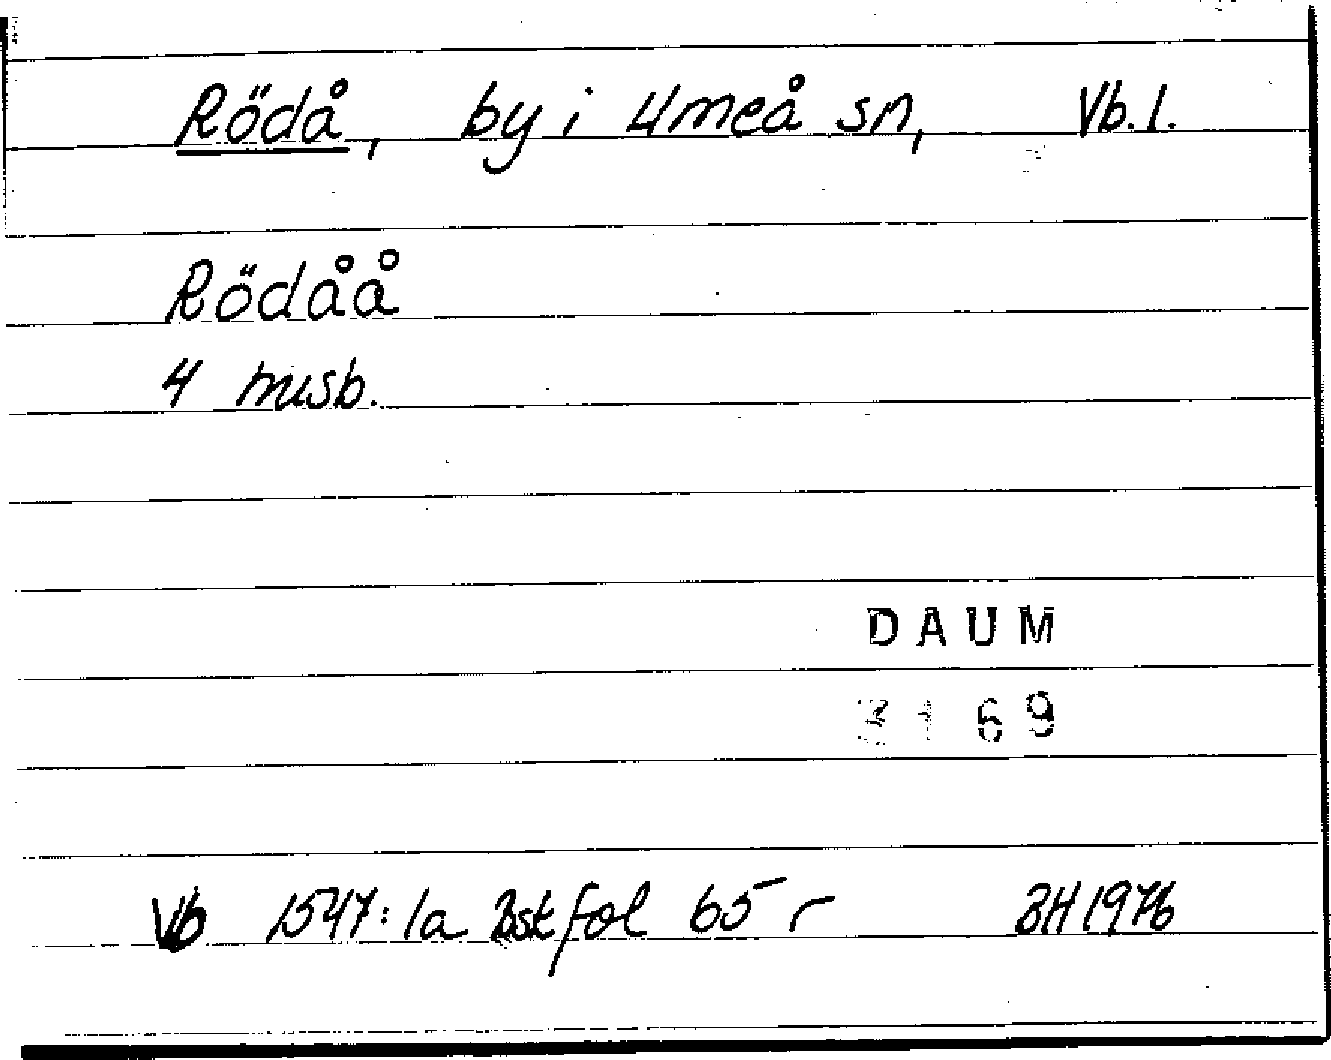 Rödå, by i Umeå sn, Vb. l.
Rödåå
4 husb.
DAUM
3169
Vb 1547:1a Bst fol 65 r BH 1976